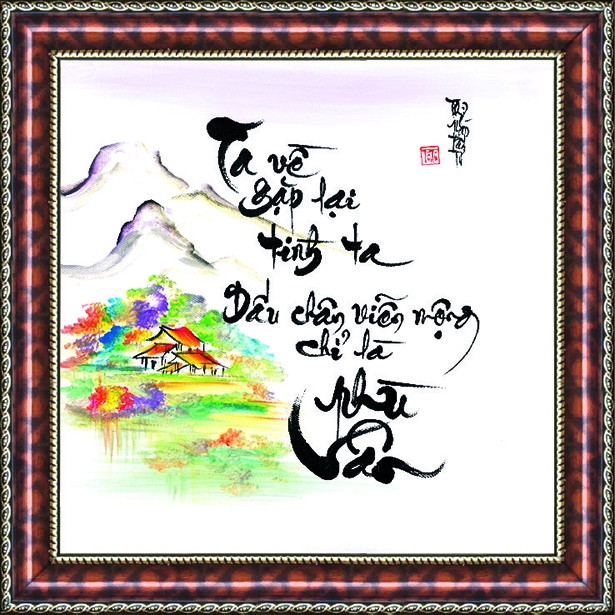 Ta về
gặp lại
tình ta
Dấu chân viễn mộng
chỉ là
phù
vân